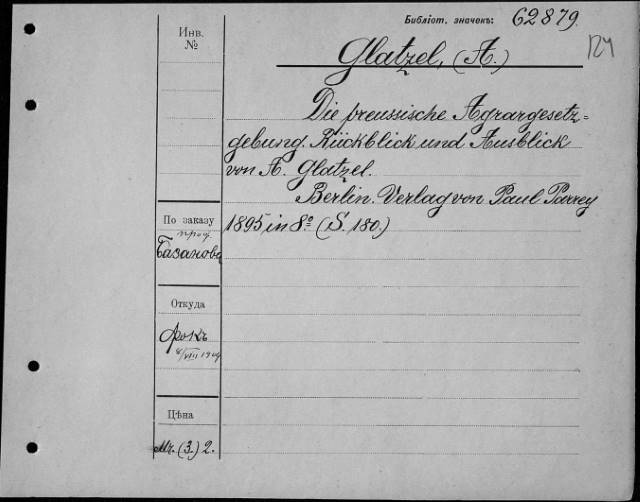 Библіот. значекъ: 62879.
124
Инв.
№
Glatzel, (A.)
Die preussische Agrargesetz=
gebung. Rückblick und Ausblick
von A. Glatzel.
Berlin. Verlag von Paul Parrey
1895 in 8.º (S. 180.)
По заказу
проф.
Базанова
Откуда
Фокъ
4/VIII 1909
Цѣна
Mr. (3.) 2.